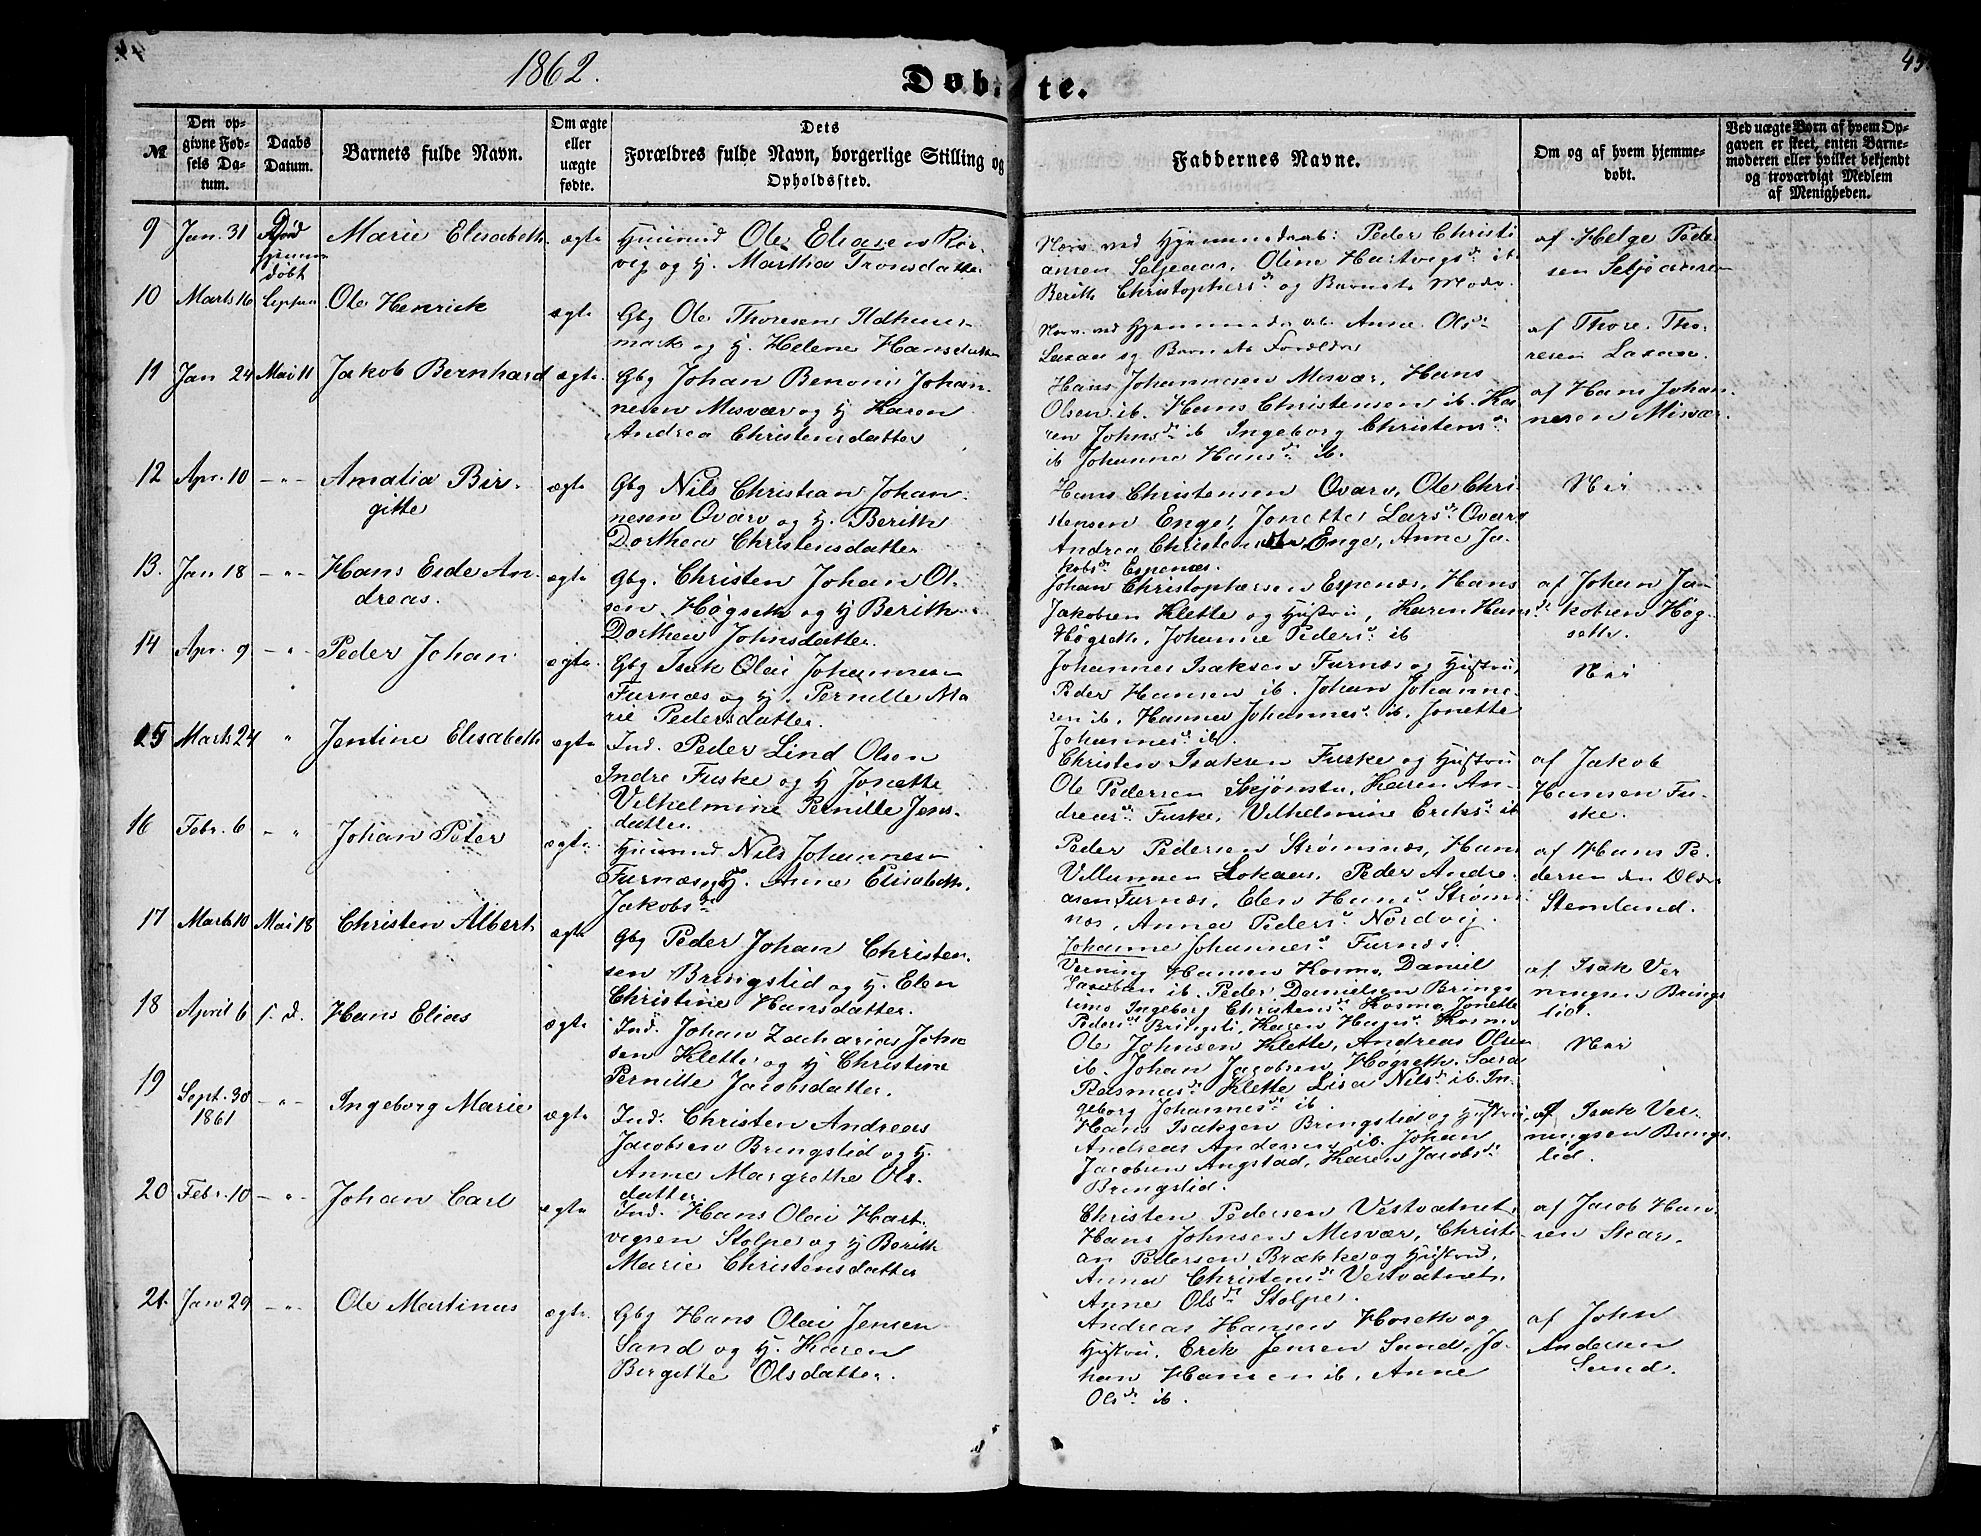 44
1862.
Døbte.
45
№
Den op-
givne Fød-
sels Da-
tum.
Daabs
Datum.
Barnets fulde Navn.
Om ægte
eller
uægte
fødte.
Dets
Forældres fulde Navn, borgerlige Stilling og
Opholdssted.
Faddernes Navne.
Om og af hvem hjemme-
døbt.
Ved uægte Børn af hvem Op-
gaven er skeet, enten Barne-
moderen eller hvilket bekjendt
og troværdigt Medlem
af Menigheden.
9 Jan. 31 Død hjemme døbt
Marie Elisabeth
ægte
Huusmd Ole Eliasen Rør-
vig og H. Marthia Tronsdatter
Nærv. ved Hjemmedaab: Peder Christi
ansen Seljeaas, Oline Hartvigsdr ib
Berith Christophersdr og Barnets Moder
af Helge Peder
sen Seljeaasen
10 Marts 16
Ole Henrick
ægte
Gbg Ole Thoresen Ildhuus-
mark og H. Helene Hansdatter
Nærv. ved Hjemmedaab Anne Olsdr
Laxaa og Barnets Forældre
af Thore Tho-
resen Laxaa.
11 Jan 24 Mai 11
Jakob Bernhard
ægte
Gbg Johan Benoni Johan-
nesen Misvær og H Karen
Andrea Christensdatter
Hans Johannesen Misvær, Hans
Olsen ib. Hans Christensen ib. Ka-
ren Johnsdr ib Ingeborg Christensdr
ib Johanna Hansdr ib.
af Hans Johan-
nesen Misvær
12 Apr. 10 - " -
Amalia Bir-
gitte
ægte
Gbg Nils Christian Johan-
nesen Kvarv og H. Berith
Dorthea Christensdatter
Hans Christensen Kvarv, Ole Chri-
stensen Enge, Jonette Larsdr Kvarv
Andrea Christensdtr Enge, Anne Ja-
kobsdr Espenes.
Nei
13. Jan 18 - " -
Hans Eide An-
dreas.
ægte
Gbg. Christen Johan Ol-
sen Høgseth og H Berith
Dorthea Johnsdatter.
Johan Christophersen Espenæs, Hans
Jakobsen Klette og Hustru, Karen Hansdr
Høgseth, Johanne Pedersdr ib
af Johan Ja-
kobsen Høg-
seth.
14 Apr. 9 - "
Peder Johan
ægte
Gbg Isak Olai Johannesen
Furnæs og H. Pernille Ma
rie Pedersdatter.
Johannes Isaksen Furnæs og Hustru,
Peder Hansen ib. Johan Johanne-
sen ib. Hanna Johannesdr ib. Jonette
Johannesdr ib.
Nei
15 Marts 24 "
Jentine Elisabeth
ægte
Ind. Peder Lind Olsen
Indre Fuske og H Jonette
Vilhelmine Pernille Jens-
datter
Christen Isaksen Fuske og Hustru
Ole Pedersen Skjønsta, Karen An-
dreasdr Fuske, Vilhelmine Eriksdr ib
af Jakob
Hansen Fu-
ske.
16 Febr. 6 - "
Johan Peter
ægte
Huusmd Nils Johannesen
Furnæs og H. Anne Elisabeth
Jakobsdr
Peder Pedersen Strømnæs, Hans
Villumsen Lokaas, Peder Andre-
asen Furnæs, Elen Hansdr Strøm-
næs, Anna Pedersdr Nordvig
Johanne Johannesdr Furnæs.
af Hans Pe-
dersen den Ældre
Stemland.
17 Marts 10 Mai 18
Christen Albert
ægte
Gbg Peder Johan Christen-
sen Bringslid og H. Elen
Christine Hansdatter.
Verning Hansen Kosmo, Daniel
Jacobsen ib. Peder Danielsen Brings
Ingeborg Christensdr Kosmo, Jonette
Pedersdr Bringsli, Karen Hansdr Kosmo
af Isak Ver
ningsen Brings
lid.
18 April 6 s. d.
Hans Elias
ægte
Ind. Johan Zacharias John
sen Klette og H Christine
Pernille Jacobsdatter.
Ole Johnsen Klette, Andreas Olsen
ib. Johan Jacobsen Høgseth, Sara
Rasmusdr Klette Lisa Nilsdr ib. In-
geborg Johannesdr ib.
Nei
19 Sept. 30
1861 - " -
Ingeborg Marie
ægte
Ind. Christen Andreas
Jacobsen Bringslid og H.
Anne Margrethe Ols-
datter.
Hans Isaksen Bringslid og Hustru,
Andreas Andersen ib. Johan
Jacobsen Angstad, Karen Jacobsdr
Bringslid.
af Isak Ver-
ningsen Brings-
lid.
20 Febr. 10 - " -
Johan Carl
ægte
Ind. Hans Olai Hart-
vigsen Stolpe og H Berith
Marie Christensdatter
Christen Pedersen Vestvatnet,
Hans Johnsen Misvær, Christi-
an Pedersen Brække og Hustru,
Anna Christensdr Vestvatnet,
Anne Olsdr Stolpe.
af Jacob Han-
sen Skar.
21. Jan 29 - " -
Ole Martinus
ægte.
Gbg Hans Olai Jensen
Sand og H. Karen
Birgitte Olsdatter.
Andreas Hansen Hoseth og
Hustru, Erik Jensen Sund, Jo-
han Hansen ib, Anne
Olsdr ib.
af John
Andersen
Sund.